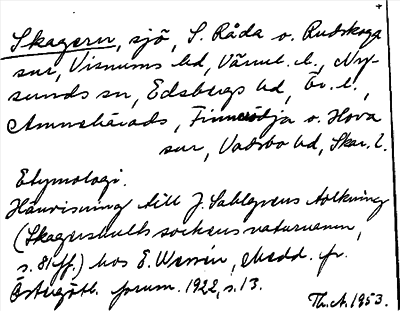 Skagern, sjö, S. Råda o. Rudskoga
snr, Visnums hd, Värml. l., Ny-
sunds sn, Edsbergs hd, Ör. l.,
Amnehärads, Finnerödja o. Hova
snr, Vadsbo hd, Skar. l.
Etymologi.
Hänvisning till J. Sahlgrens tolkning
(Skagershults sockens naturnamn,
s. 81 ff.) hos E. Wessén, Medd. fr.
Östergötl. fornm. 1922, s. 13.
Th. A. 1953.